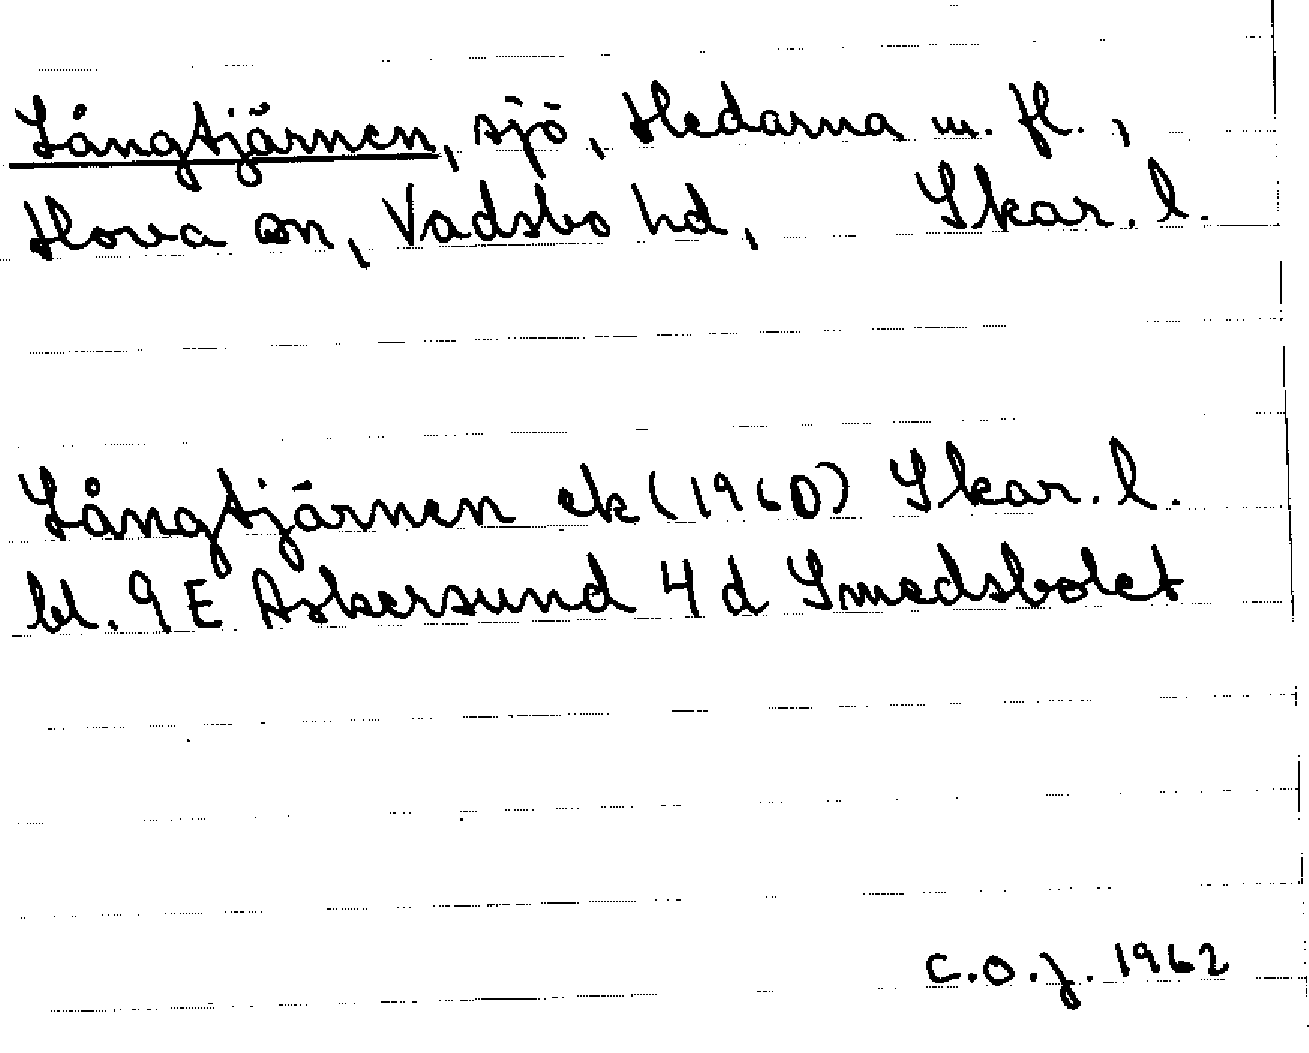 Långtjärnen, sjö, Hedarna m. fl.,
Hova sn, Vadsbo hd, Skar. l.
Långtjärnen ek (1960) Skar. l.
bl. 9 E Askersund 4 d Smedsbolet
C.O.J. 1962